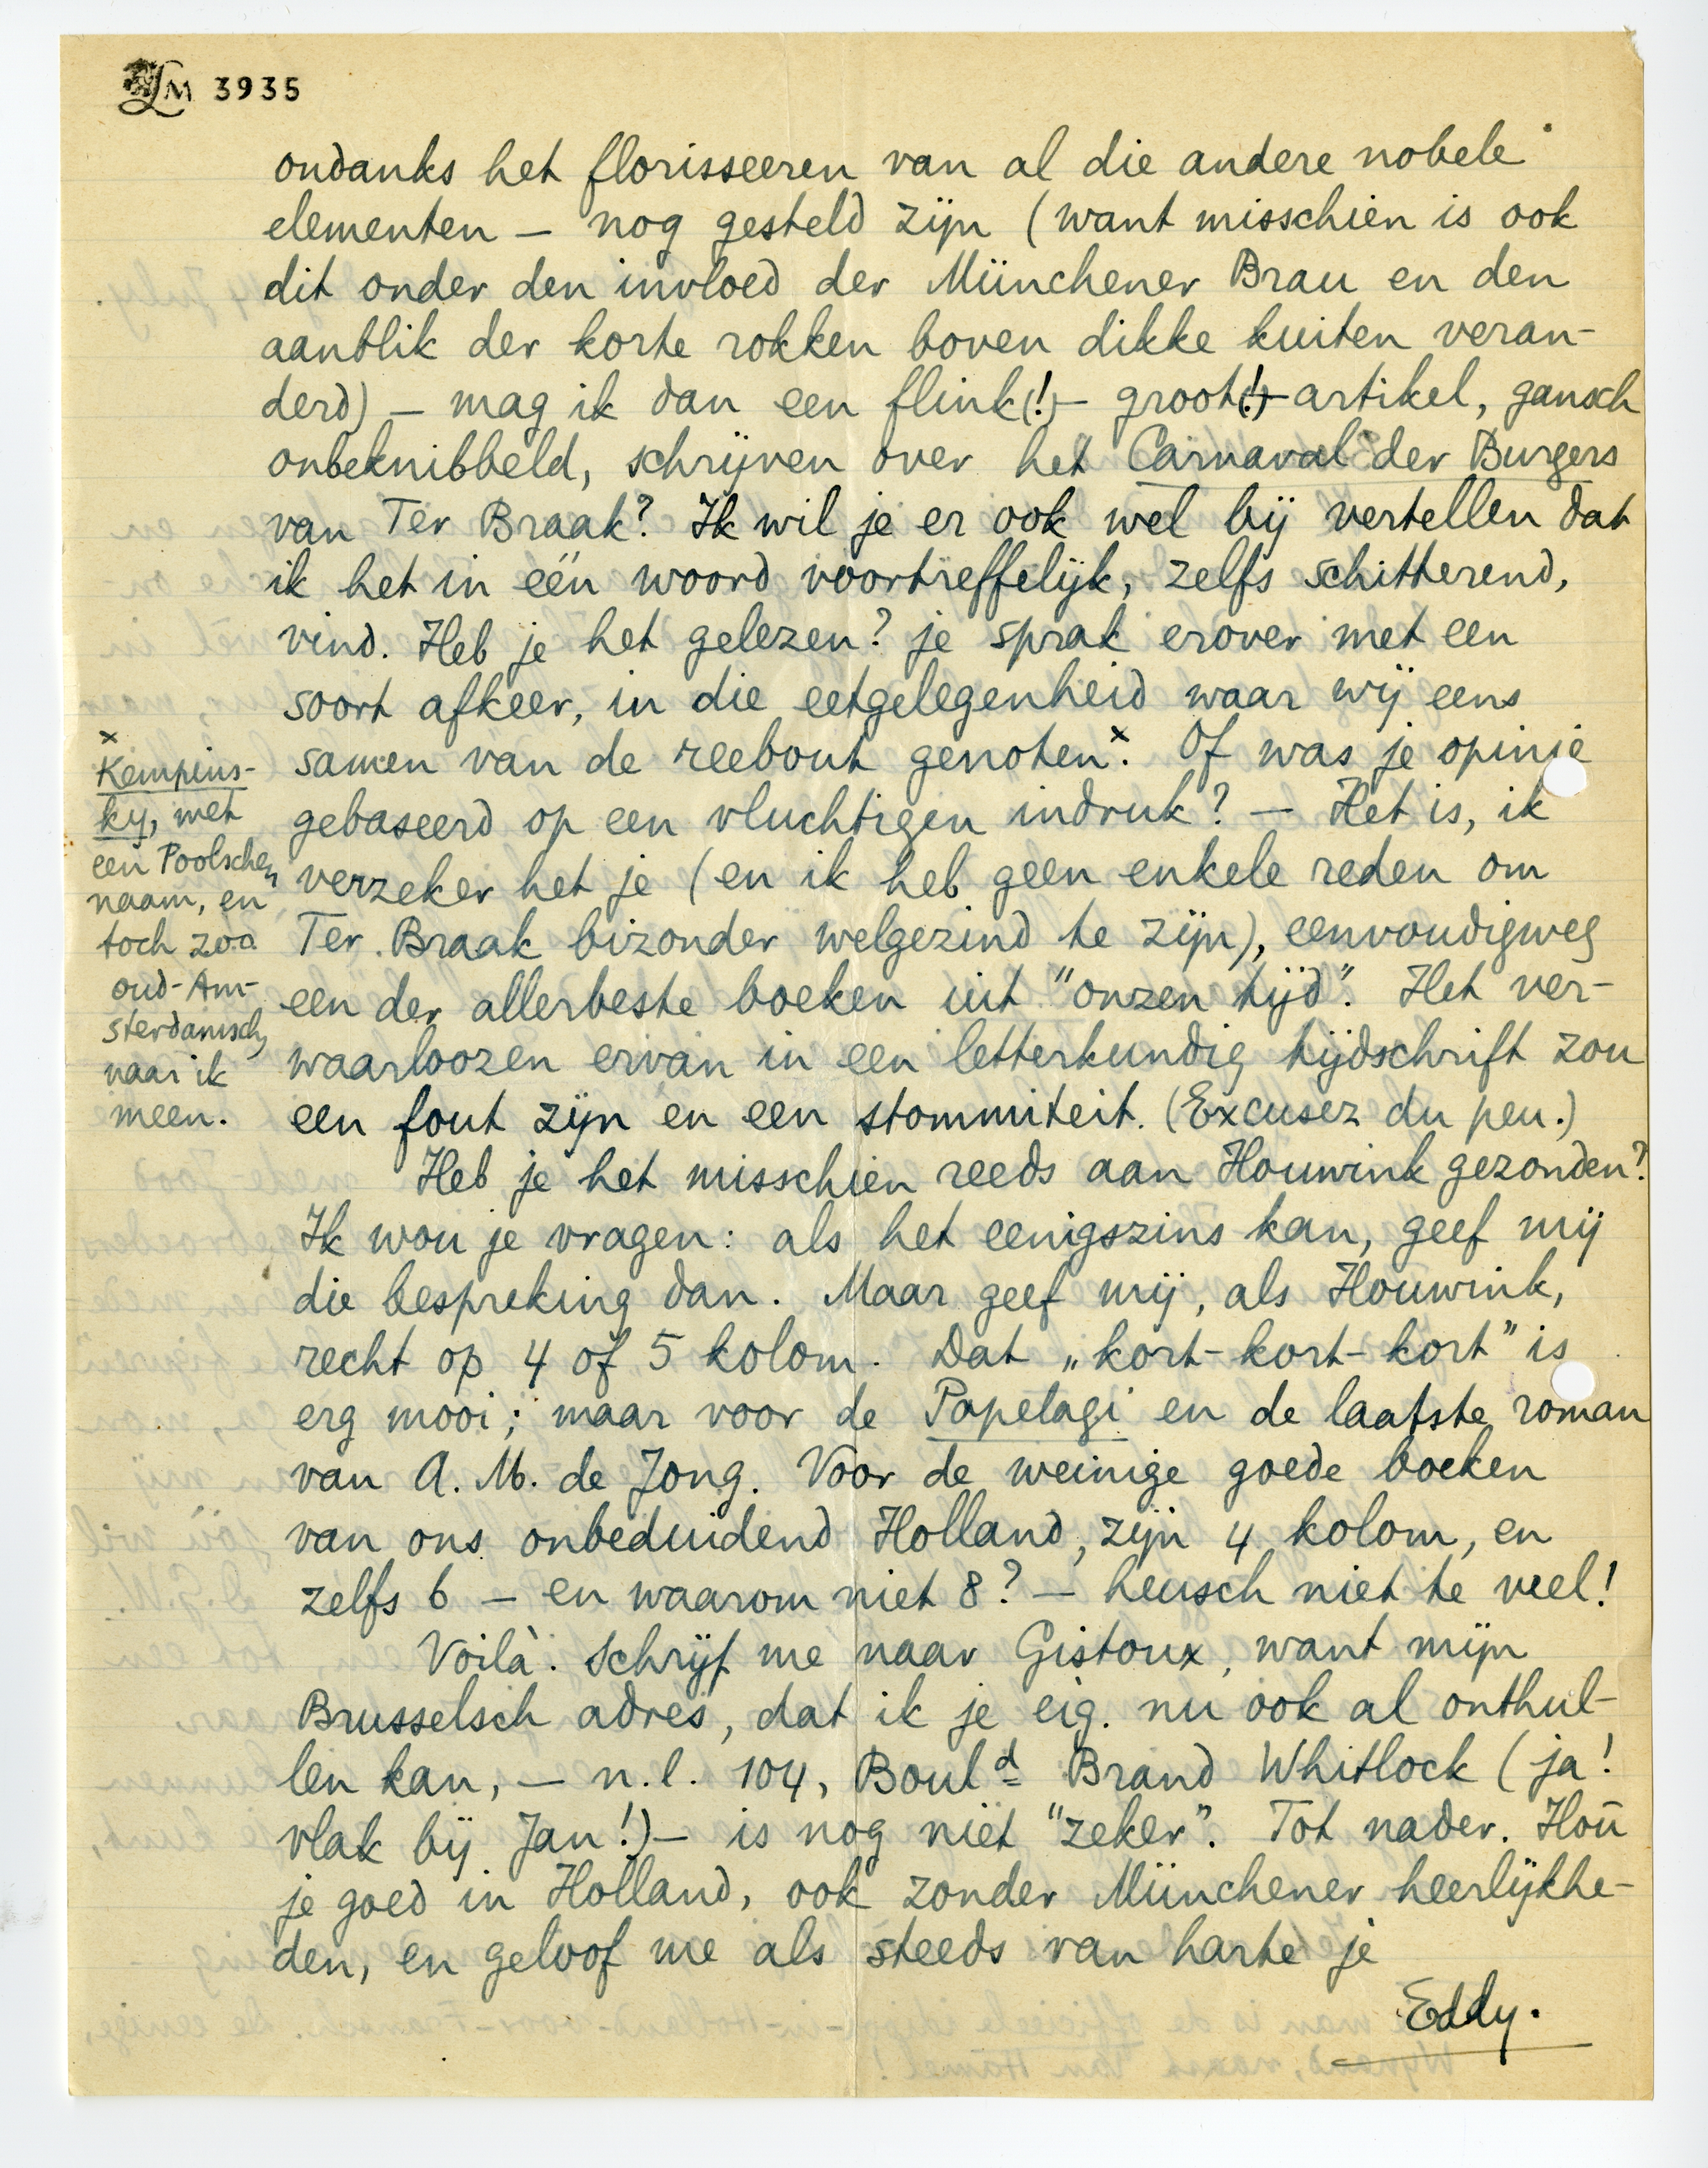 LM 3935
ondanks het florisseeren van al die andere nobele
elementen – nog gesteld zijn (want misschien is ook
dit onder den invloed der Münchener Brau en den
aanblik der korte rokken boven dikke kuiten veran-
derd) – mag ik dan een flink(!) – groot(!) – artikel, gansch
onbeknibbeld, schrijven over het Carnaval der Burgers
van Ter Braak? Ik wil je er ook wel bij vertellen dat
ik het in één woord voortreffelijk, zelfs schitterend,
vind. Heb je het gelezen? je sprak erover met een
soort afkeer, in die eetgelegenheid waar wij eens
samen van de reebout genoten.x Of was je opinie
gebaseerd op een vluchtigen indruk? – Het is, ik
verzeker het je (en ik heb geen enkele reden om
Ter Braak bizonder welgezind te zijn), eenvoudigweg
een der allerbeste boeken uit "onzen tijd". Het ver-
waarloozen ervan in een letterkundig tijdschrift zou
een fout zijn en een stommiteit. (Excusez du peu.)
Heb je het misschien reeds aan Houwink gezonden?
Ik wou je vragen: als het eenigszins kan, geef mij
die bespreking dan. Maar geef mij, als Houwink,
recht op 4 of 5 kolom. Dat „kort-kort-kort" is
erg mooi; maar voor de Papelagi en de laatste roman
van A. M. de Jong. Voor de weinige goede boeken
van ons onbeduidend Holland, zijn 4 kolom, en
zelfs 6 – en waarom niet 8? – heusch niet te veel!
Voilà. Schrijf me naar Gistoux, want mijn
Brusselsch adres, dat ik je eig. nu ook al onthul-
len kan, – n.l. 104, Boul<sup>d</sup> Brand Whitlock (ja!
vlak bij Jan!) – is nog niet "zeker". Tot nader. Hou
je goed in Holland, ook zonder Münchener heerlijkhe-
den, en geloof me als steeds van harte je
Eddy.
x
Kempins-
ky, met
een Poolschen
naam, en
toch zoo
oud-Am-
sterdamsch,
naar ik
meen.